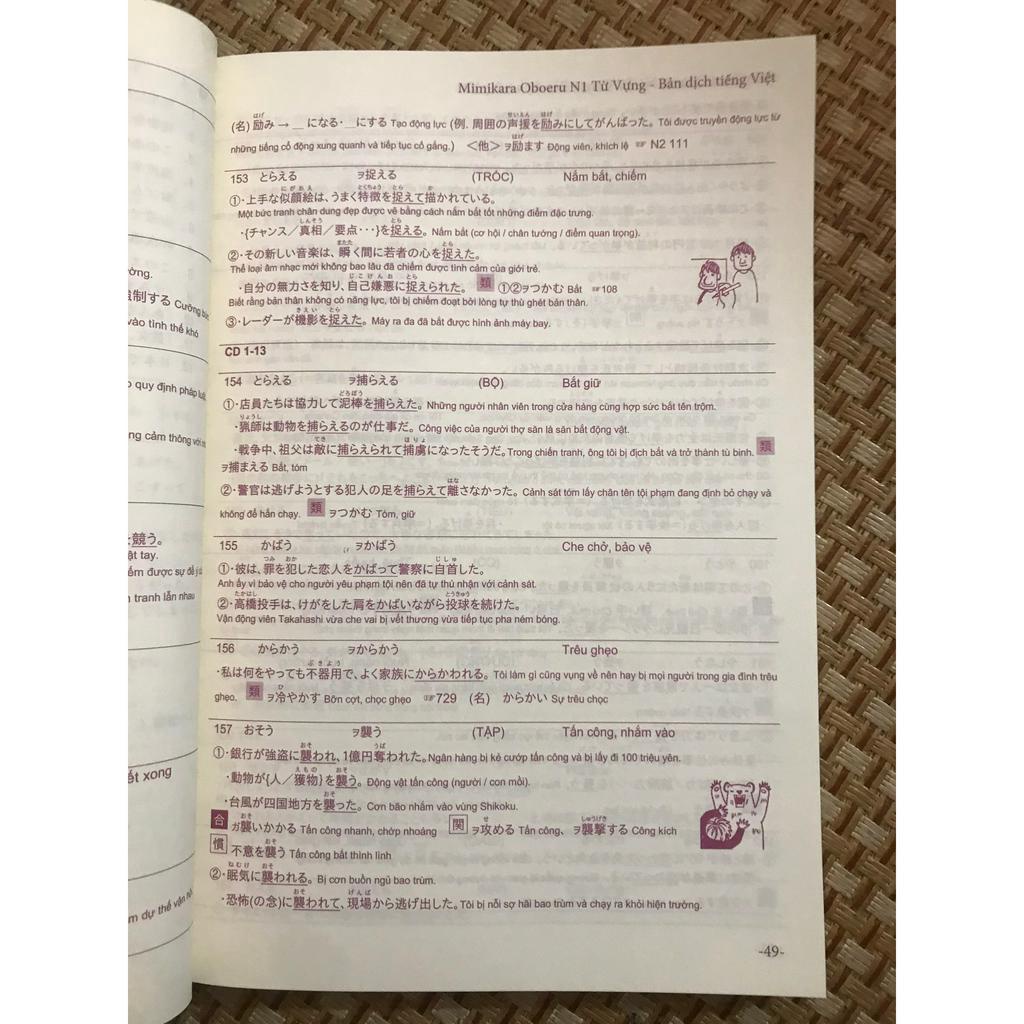 Mimikara Oboeru N1 Từ Vựng - Bản dịch tiếng Việt
(名) 励み → __ になる・__にする Tạo động lực (例. 周囲の声援を励みにしてがんばった。 Tôi được truyền động lực từ
những tiếng cổ động xung quanh và tiếp tục cố gắng.) ＜他＞ ヲ励ます Động viên, khích lệ ☞ N2 111
153 とらえる ヲ捉える (TRÓC) Nắm bắt, chiếm
①・上手な似顔絵は、うまく特徴を捉えて描かれている。
Một bức tranh chân dung đẹp được vẽ bằng cách nắm bắt tốt những điểm đặc trưng.
・{チャンス／真相／要点・・・}を捉える。 Nắm bắt (cơ hội / chân tướng / điểm quan trọng).
②・その新しい音楽は、瞬く間に若者の心を捉えた。
Thể loại âm nhạc mới không bao lâu đã chiếm được tình cảm của giới trẻ.
・自分の無力さを知り、自己嫌悪に捉えられた。 類 ①②ヲつかむ Bắt ☞108
Biết rằng bản thân không có năng lực, tôi bị chiếm đoạt bởi lòng tự thù ghét bản thân.
③・レーダーが機影を捉えた。 Máy ra đa đã bắt được hình ảnh máy bay.
CD 1-13
154 とらえる ヲ捕らえる (BỘ) Bắt giữ
①・店員たちは協力して泥棒を捕らえた。 Những người nhân viên trong cửa hàng cùng hợp sức bắt tên trộm.
・猟師は動物を捕らえるのが仕事だ。 Công việc của người thợ săn là săn bắt động vật.
・戦争中、祖父は敵に捕らえられて捕虜になったそうだ。 Trong chiến tranh, ông tôi bị địch bắt và trở thành tù binh. 類
ヲ捕まえる Bắt, tóm
②・警官は逃げようとする犯人の足を捕らえて離さなかった。 Cảnh sát tóm lấy chân tên tội phạm đang định bỏ chạy và
không để hắn chạy. 類 ヲつかむ Tóm, giữ
155 かばう ヲかばう Che chở, bảo vệ
①・彼は、罪を犯した恋人をかばって警察に自首した。
Anh ấy vì bảo vệ cho người yêu phạm tội nên đã tự thú nhận với cảnh sát.
②・高橋投手は、けがをした肩をかばいながら投球を続けた。
Vận động viên Takahashi vừa che vai bị vết thương vừa tiếp tục pha ném bóng.
156 からかう ヲからかう Trêu ghẹo
・私は何をやっても不器用で、よく家族にからかわれる。 Tôi làm gì cũng vụng về nên hay bị mọi người trong gia đình trêu
ghẹo. 類 ヲ冷やかす Bỡn cợt, chọc ghẹo ☞729 (名) からかい Sự trêu chọc
157 おそう ヲ襲う (TẬP) Tấn công, nhắm vào
①・銀行が強盗に襲われ、1億円奪われた。 Ngân hàng bị kẻ cướp tấn công và bị lấy đi 100 triệu yên.
・動物が{人／獲物}を襲う。 Động vật tấn công (người / con mồi).
・台風が四国地方を襲った。 Cơn bão nhắm vào vùng Shikoku.
合 ガ襲いかかる Tấn công nhanh, chớp nhoáng 関 ヲ攻める Tấn công、ヲ襲撃する Công kích
慣 不意を襲う Tấn công bất thình lình
②・眠気に襲われる。 Bị cơn buồn ngủ bao trùm.
・恐怖(の念)に襲われて、現場から逃げ出した。 Tôi bị nỗi sợ hãi bao trùm và chạy ra khỏi hiện trường.
-49-